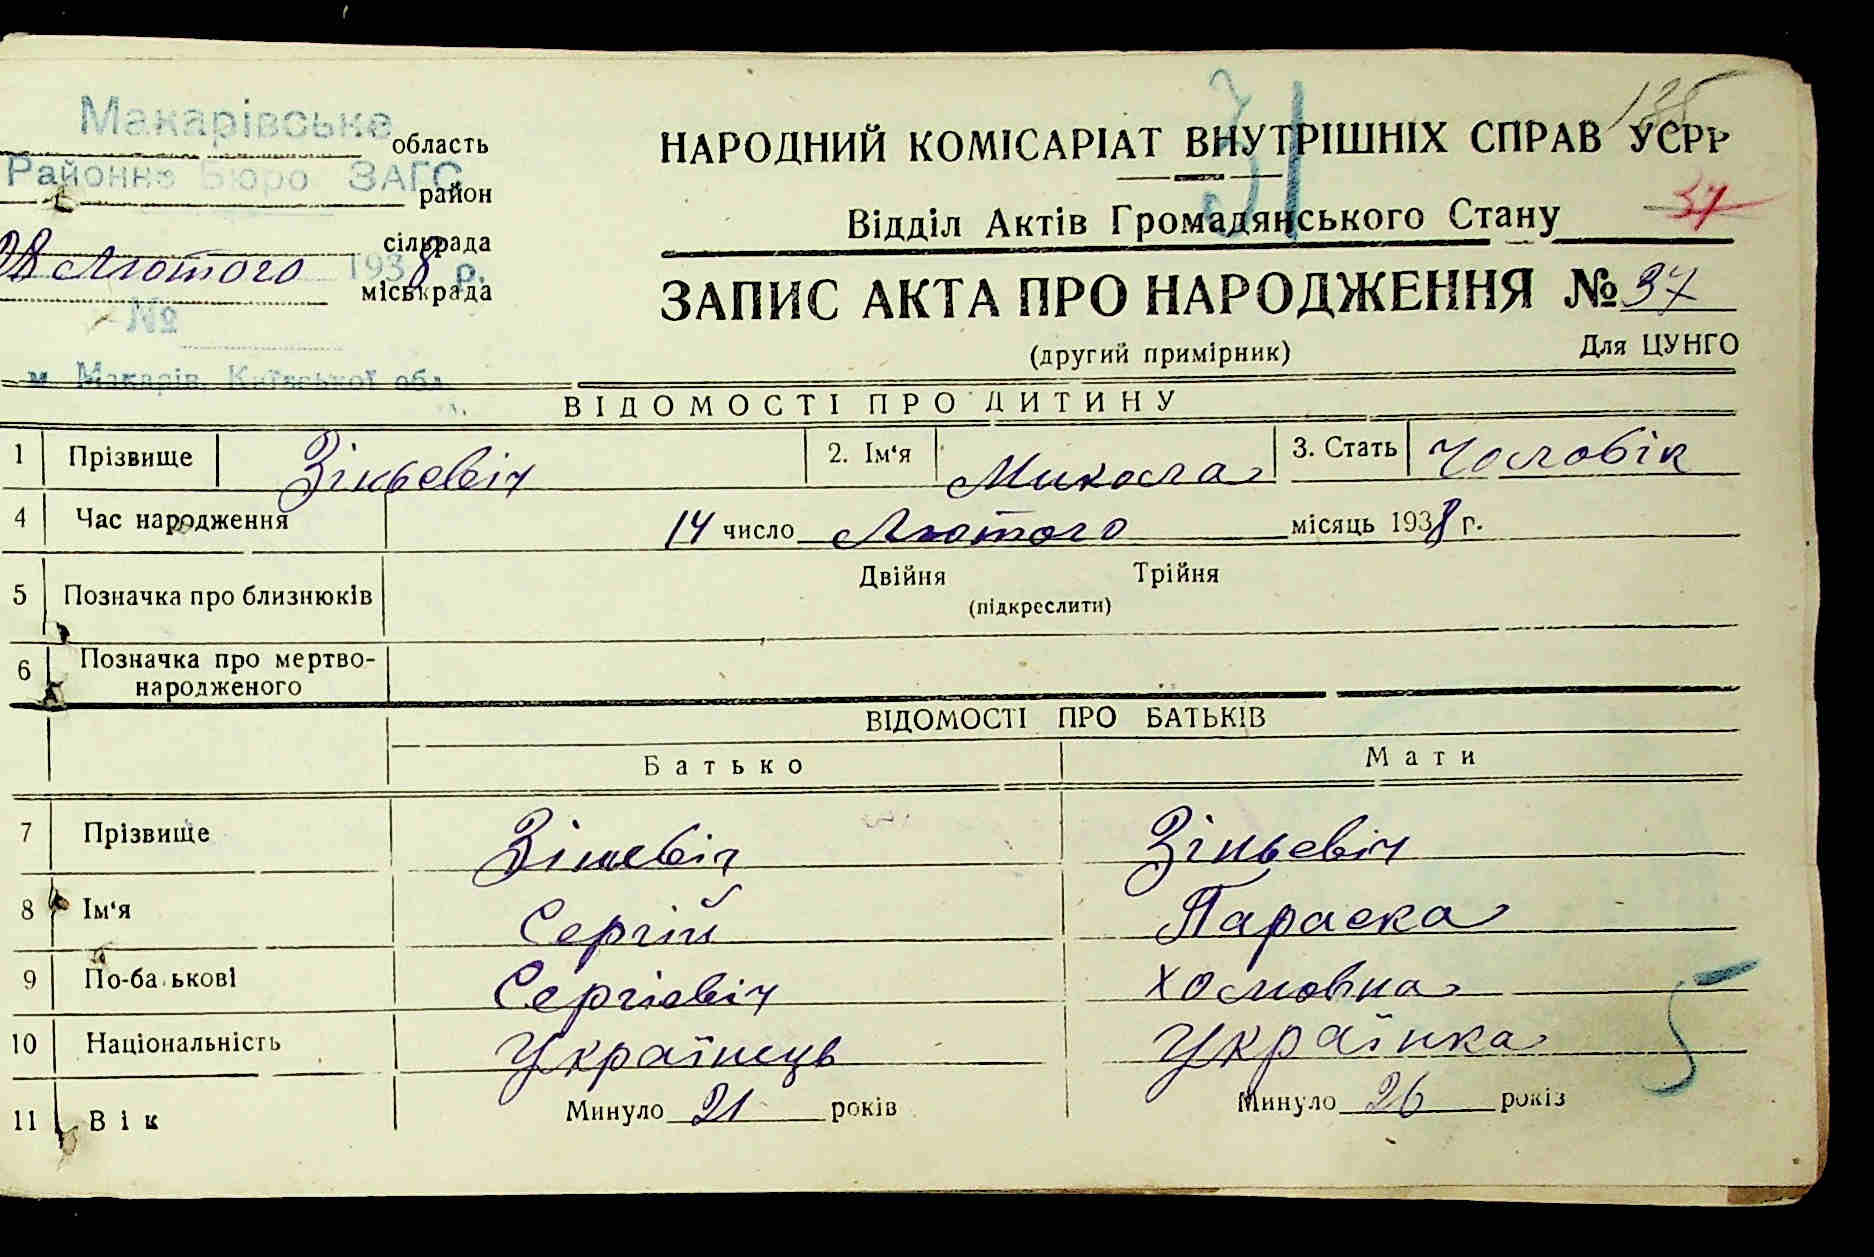 135
Макарівське область
Районне Бюро ЗАГС район
сільрада
28 Лютого 1938 р.
міськрада
№
м. Макарів, Київської обл.
31
НАРОДНИЙ КОМІСАРІАТ ВНУТРІШНІХ СПРАВ УСРР
37
Відділ Актів Громадянського Стану
ЗАПИС АКТА ПРО НАРОДЖЕННЯ № 37
(другий примірник) Для ЦУНГО
ВІДОМОСТІ ПРО ДИТИНУ
1 Прізвище Зіньевіч 2. Ім‘я Микола 3. Стать Чоловік
4 Час народження 14 число Лютого місяць 1938 р.
5 Позначка про близнюків Двійня Трійня
(підкреслити)
6 Позначка про мертво-
народженого
ВІДОМОСТІ ПРО БАТЬКІВ
Батько Мати
7 Прізвище Зіневіч Зіньевіч
8 Ім‘я Сергій Параска
9 По-ба ькові Сергієвіч Хомовна
10 Національність Українець Українка
11 Вік Минуло 21 років Минуло 26 років